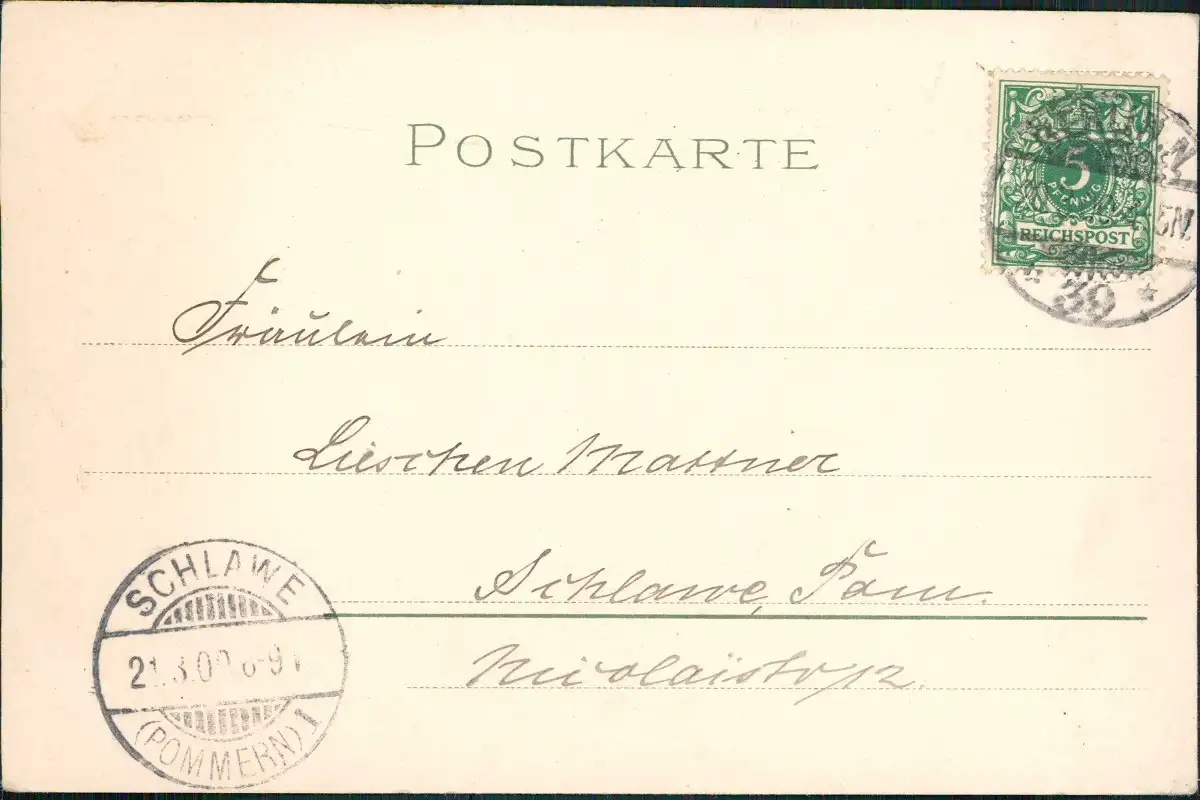 POSTKARTE
5
PFENNIG
REICHSPOST
BERLIN N
39
Fräulein
Lieschen Mattner
Schlawe, Pom.
Nicolaistr 12.
SCHLAWE
21.3.00 8-9V
(POMMERN) 1